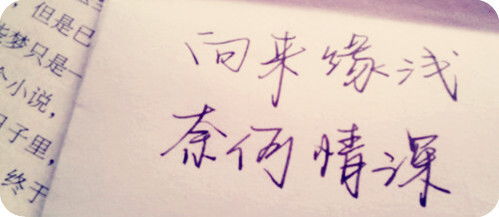 但是已
梦只是一
个小说，
日子里，
终于
向来缘浅
奈何情深